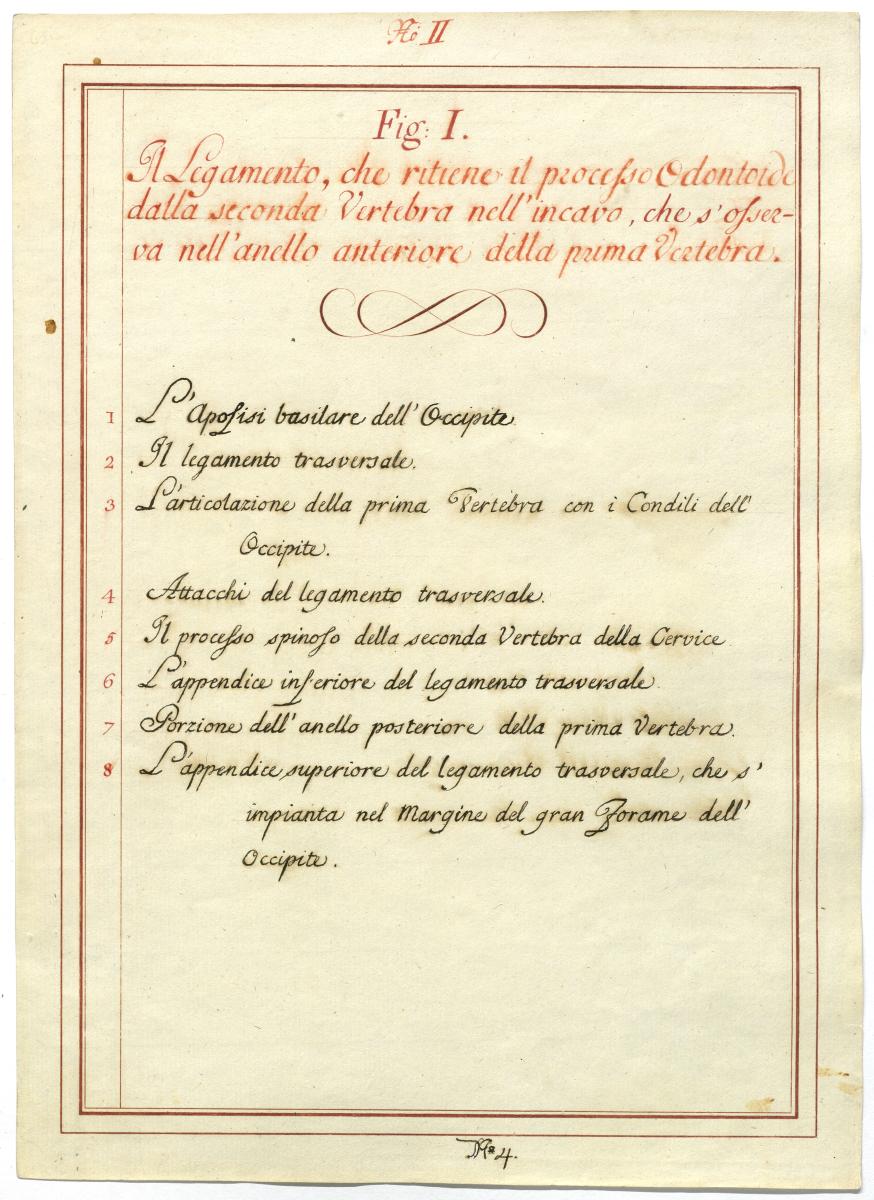 No II
Fig: I.
Il Legamento, che ritiene il processo Odontoide
dalla seconda Vertebra nell'incavo, che s'osser-
va nell'anello anteriore della prima Vertebra.
1 L'Apofisi basilare dell'Occipite
2 Il legamento trasversale.
3 L'articolazione della prima Vertebra con i Condili dell'
Occipite.
4 Attacchi del legamento trasversale.
5 Il processo spinoso della seconda Vertebra della Cervice
6 L'appendice inferiore del legamento trasversale
7 Porzione dell'anello posteriore della prima Vertebra.
8 L'appendice superiore del legamento trasversale, che s'
impianta nel Margine del gran Forame dell'
Occipite.
4.